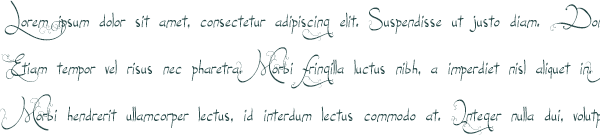 Lorem ipsum dolor sit amet, consectetur adipiscing elit. Suspendisse ut justo diam.
Etiam tempor vel risus nec pharetra. Morbi fringilla luctus nibh, a imperdiet nisl aliquet in.
Morbi hendrerit ullamcorper lectus, id interdum lectus commodo at. Integer nulla dui,